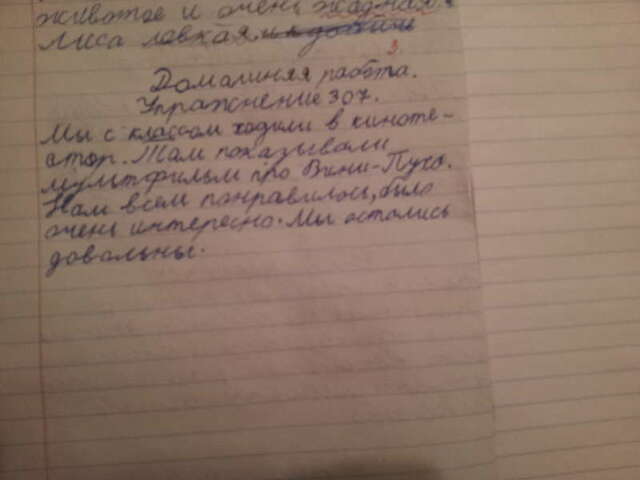 животое и очень жадная
лиса ловкая
Домашняя работа.
Упражнение 307.
Мы с классом ходили в киноте-
атор. Там показывали
мультфильм про Вини-Пуха.
Нам всем понравилось, было
очень интересно. Мы остались
довальны.